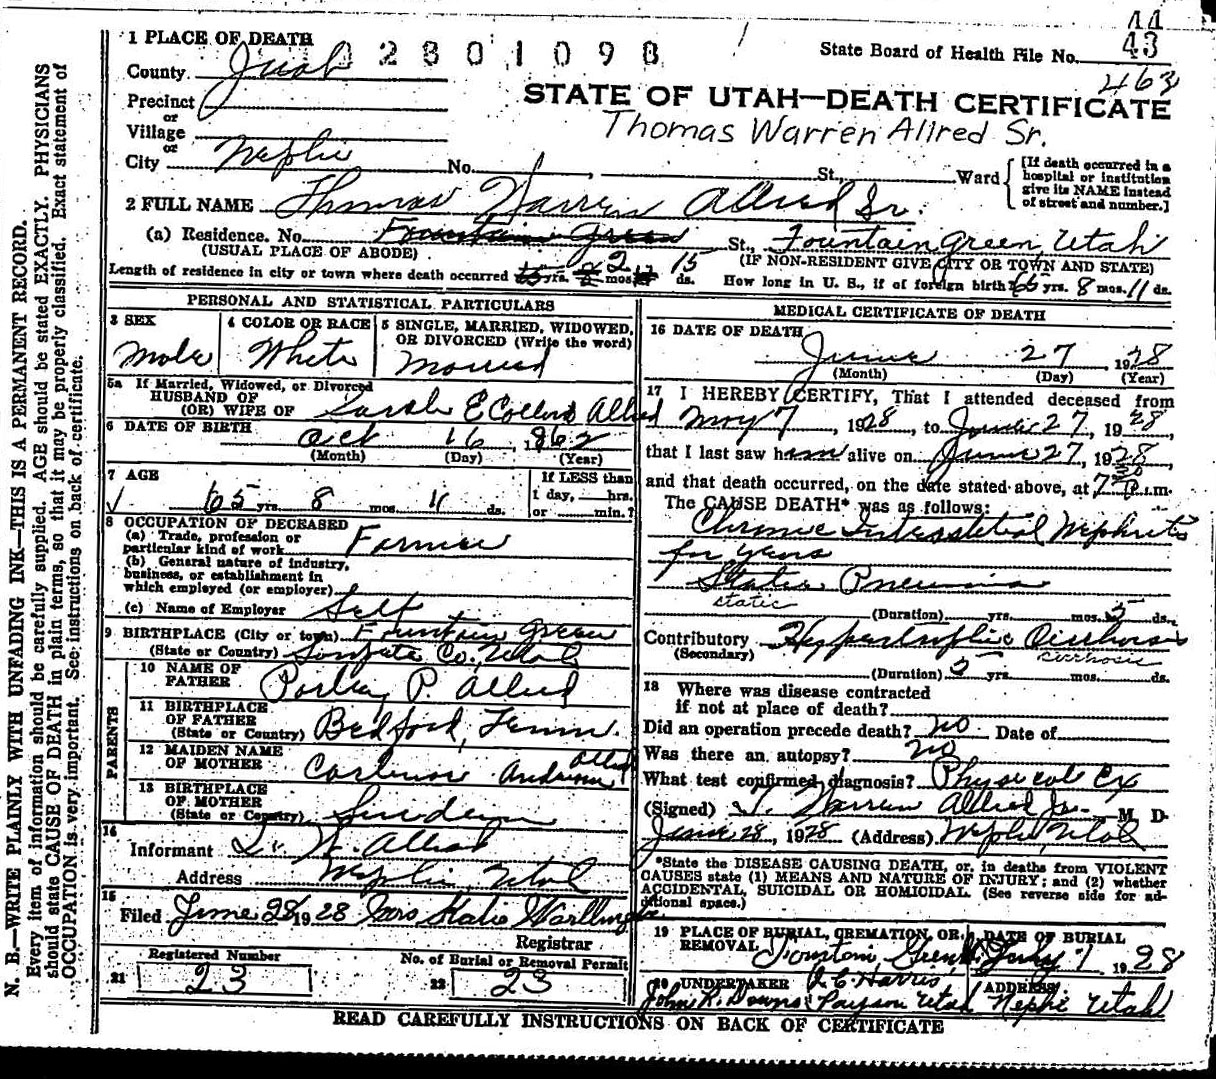 44
43
1 PLACE OF DEATH
2801098
State Board of Health File No.
463
County Juab
STATE OF UTAH—DEATH CERTIFICATE
Precinct
or
Village
Thomas Warren Allred Sr.
or
City Nephi No. , St., Ward
[If death occurred in a hospital or institution give its NAME instead of street and number.]
2 FULL NAME Thomas Warren Allred Sr.
(a) Residence. No. Fountain Green St., Fountain Green, Utah
(USUAL PLACE OF ABODE) (IF NON-RESIDENT GIVE CITY OR TOWN AND STATE)
Length of residence in city or town where death occurred yrs. 2 mos. 15 ds. How long in U. S., if of foreign birth? 65 yrs. 8 mos. 11 ds.
PERSONAL AND STATISTICAL PARTICULARS
3 SEX
Male
4 COLOR OR RACE
White
5 SINGLE, MARRIED, WIDOWED, OR DIVORCED (Write the word)
Married
5a If Married, Widowed, or Divorced
HUSBAND OF
(OR) WIFE OF Sarah E Collard Allred
6 DATE OF BIRTH Oct 16, 1862
(Month) (Day) (Year)
7 AGE
65 yrs. 8 mos. 11 ds.
If LESS than
1 day, hrs.
or min.?
8 OCCUPATION OF DECEASED
(a) Trade, profession or
particular kind of work Farmer
(b) General nature of industry,
business, or establishment in
which employed (or employer)
(c) Name of Employer Self
9 BIRTHPLACE (City or town) Fountain Green
(State or Country) Sanpete Co. Utah
PARENTS
10 NAME OF
FATHER P. Allred
11 BIRTHPLACE
OF FATHER
(State or Country) Bedford, Tenn.
12 MAIDEN NAME
OF MOTHER Allred
13 BIRTHPLACE
OF MOTHER
(State or Country) Sweden
14
Informant W. Allred
Address Nephi, Utah
15
Filed June 28 1928
Registrar
Registered Number
21 23
No. of Burial or Removal Permit
22 23
MEDICAL CERTIFICATE OF DEATH
16 DATE OF DEATH
June 27 1928
(Month) (Day) (Year)
17 I HEREBY CERTIFY, That I attended deceased from
May 7, 1928, to June 27, 1928,
that I last saw him alive on June 27, 1928,
and that death occurred, on the date stated above, at 7 30 P.m.
The CAUSE DEATH* was as follows:
Chronic Interstetial Nephritis
for years
Static Pneumonia
static
(Duration) yrs. mos. 5 ds.
Contributory Hypertrophic Cirrhosis
(Secondary) cirrhosis
(Duration) 5 yrs. mos. ds.
18 Where was disease contracted
if not at place of death?
Did an operation precede death? no Date of
Was there an autopsy? no
What test confirmed diagnosis? Physical Ex
(Signed) T. Warren Allred Jr. M D.
June 28, 1928 (Address) Nephi, Utah
*State the DISEASE CAUSING DEATH, or, in deaths from VIOLENT
CAUSES state (1) MEANS AND NATURE OF INJURY; and (2) whether
ACCIDENTAL, SUICIDAL OR HOMICIDAL. (See reverse side for ad-
ditional space.)
19 PLACE OF BURIAL, CREMATION, OR
REMOVAL Fountain Green
DATE OF BURIAL
July 1 1928
20 UNDERTAKER Harris
ADDRESS
John R. Downs Payson Utah Nephi Utah
READ CAREFULLY INSTRUCTIONS ON BACK OF CERTIFICATE
N. B.—WRITE PLAINLY WITH UNFADING INK—THIS IS A PERMANENT RECORD.
Every item of information should be carefully supplied. AGE should be stated EXACTLY. PHYSICIANS
should state CAUSE OF DEATH in plain terms, so that it may be properly classified. Exact statement of
OCCUPATION is very important. See instructions on back of certificate.